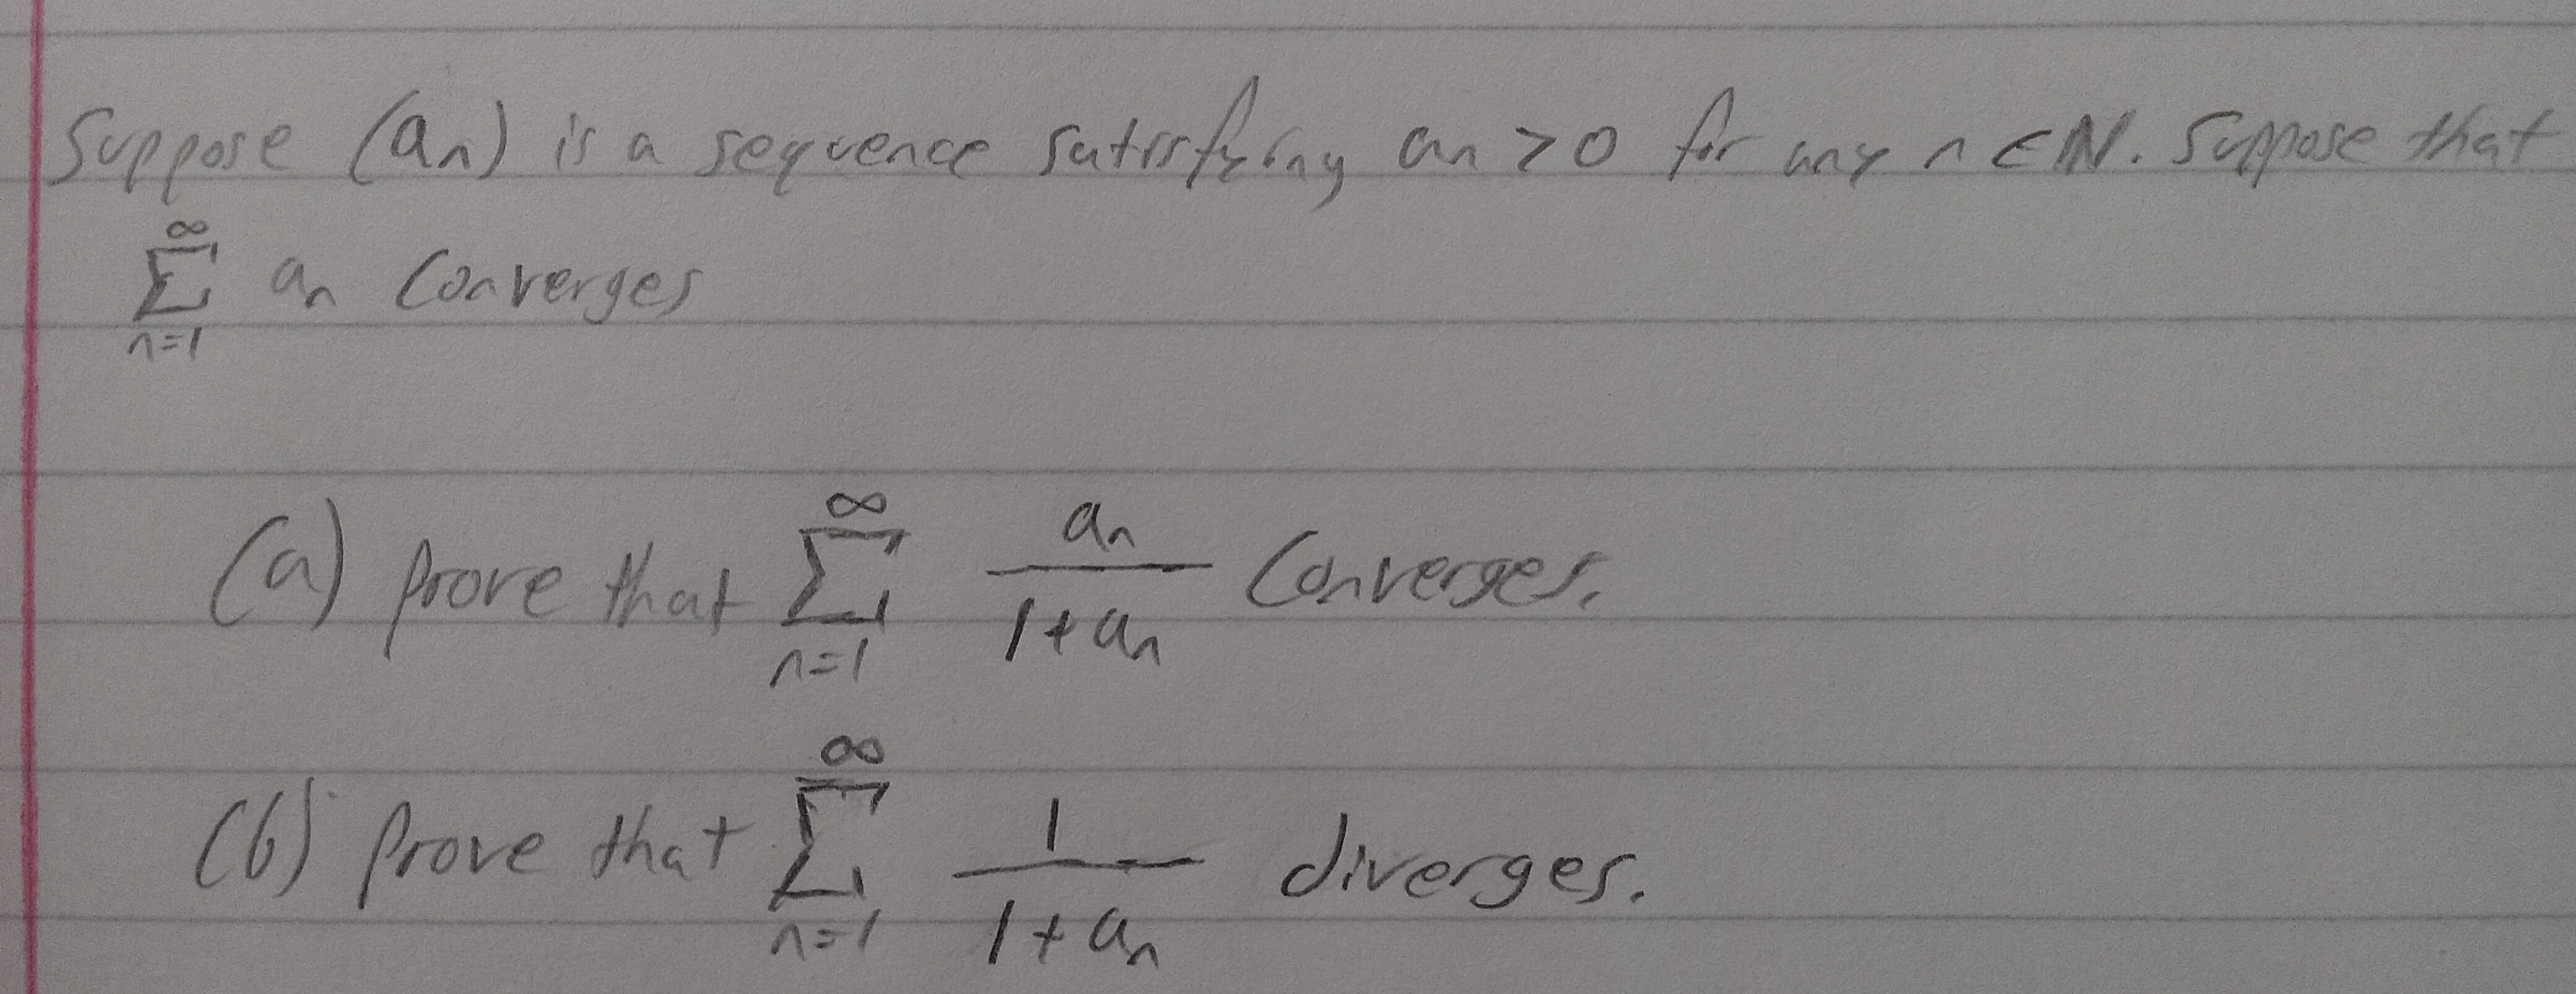 Suppose (aₙ) is a sequence satisfying aₙ > 0 for any n ∈ ℕ. Suppose that
∞∑n=1 aₙ converges
(a) prove that ∞∑n=1 aₙ/(1+aₙ) Converges.
(b) Prove that ∞∑n=1 1/(1+aₙ) diverges.